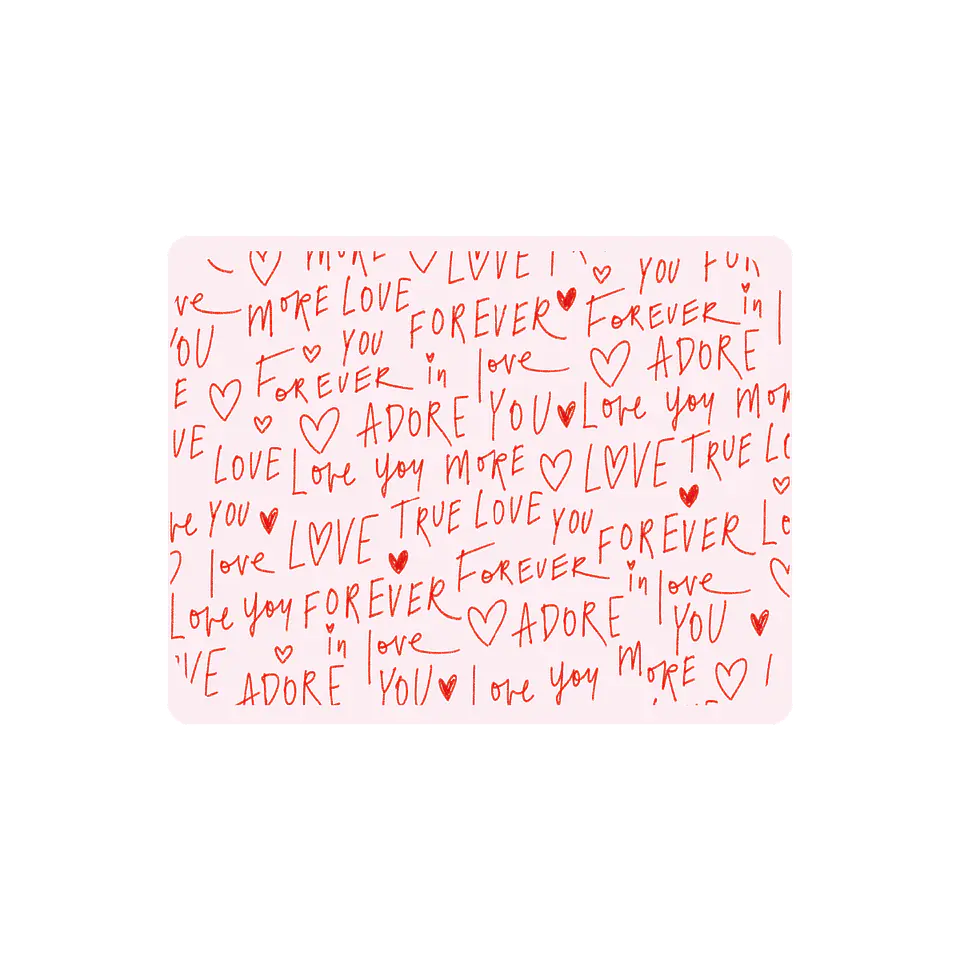 MORE LOVE YOU FOR
ve MORE LOVE FOREVER FOREVER in
YOU FOREVER YOU in love ADORE
E ADORE YOU Love you MOR
VE LOVE Love you MORE LOVE TRUE LO
ve YOU LOVE TRUE LOVE YOU FOREVER Lo
love FOREVER in love
Love you FOREVER ADORE YOU
VE in love MORE
ADORE YOU Love you